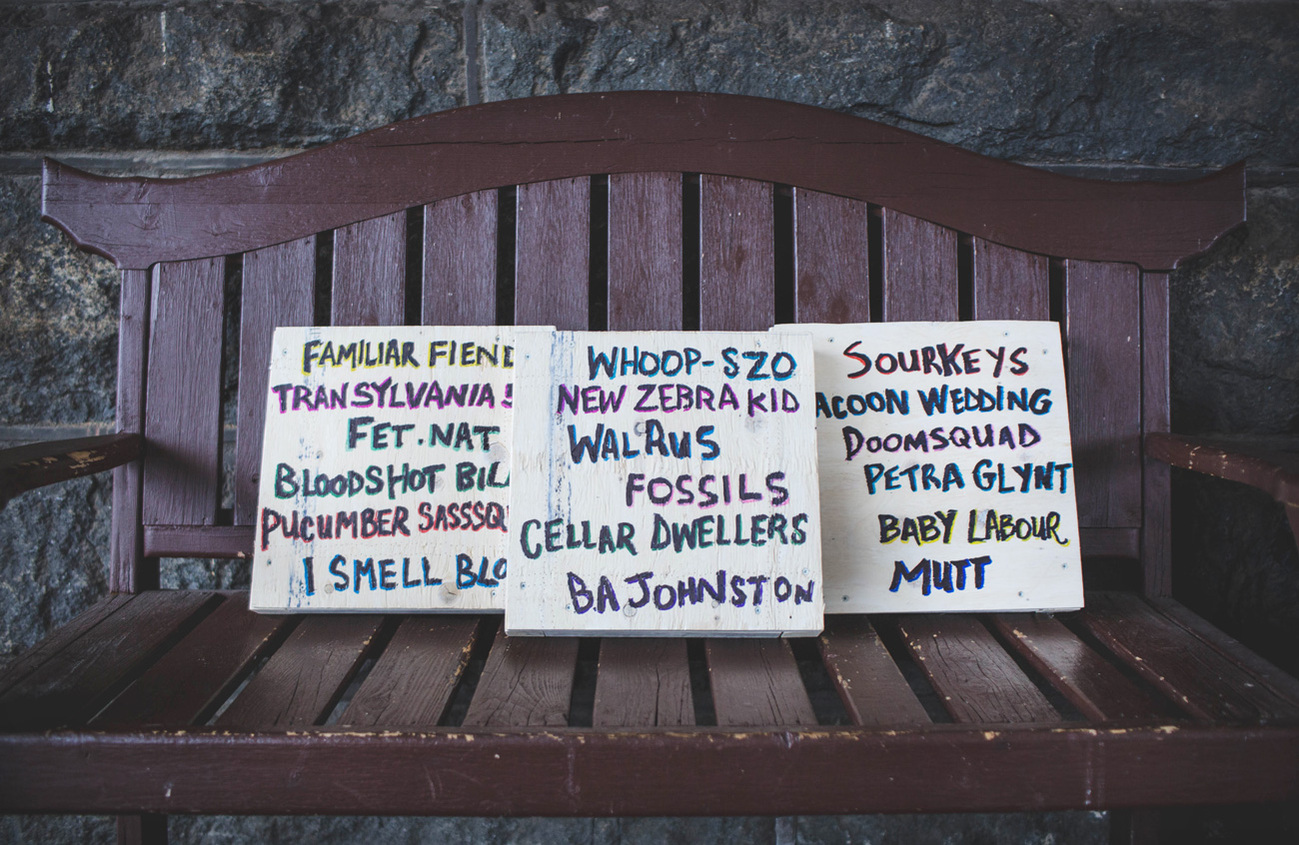 FAMILIAR FIEND
TRANSYLVANIA
FET.NAT
BLOODSHOT BIL
PUCUMBER SASSSQU
I SMELL BLO
WHOOP-SZO
NEW ZEBRA KID
WALRUS
FOSSILS
CELLAR DWELLERS
B.A JOHNSTON
SOURKEYS
ACOON WEDDING
DOOMSQUAD
PETRA GLYNT
BABY LABOUR
MUTT